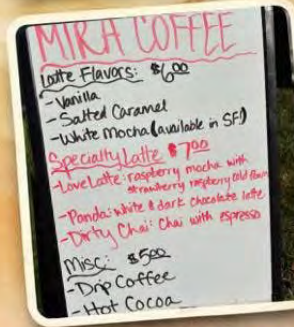 MIRA COFFEE
Latte Flavors: $6.00
- Vanilla
- Salted Caramel
- White Mocha (available in SF!)
Specialty Latte $7.00
- Love Latte: raspberry mocha with
strawberry raspberry cold foam
- Panda: White & dark chocolate latte
- Dirty Chai: Chai with espresso
Misc: $5.00
- Drip Coffee
- Hot Cocoa